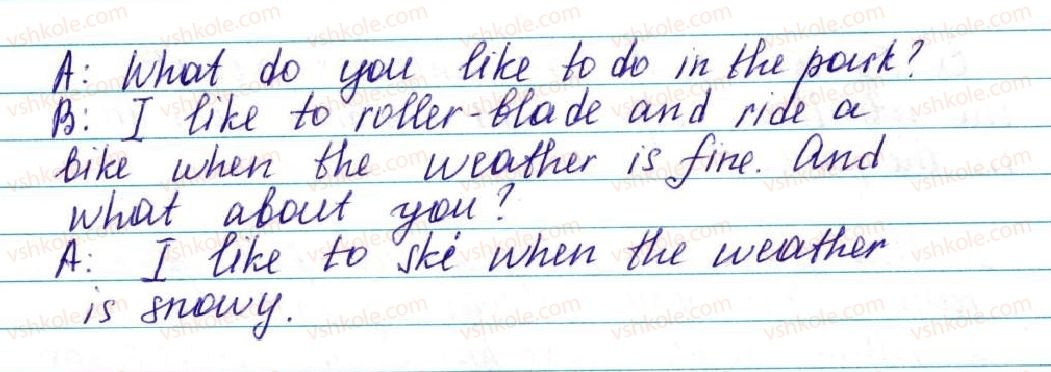 A: What do you like to do in the park?
B: I like to roller-blade and ride a
bike when the weather is fine. And
what about you?
A: I like to ski when the weather
is snowy.